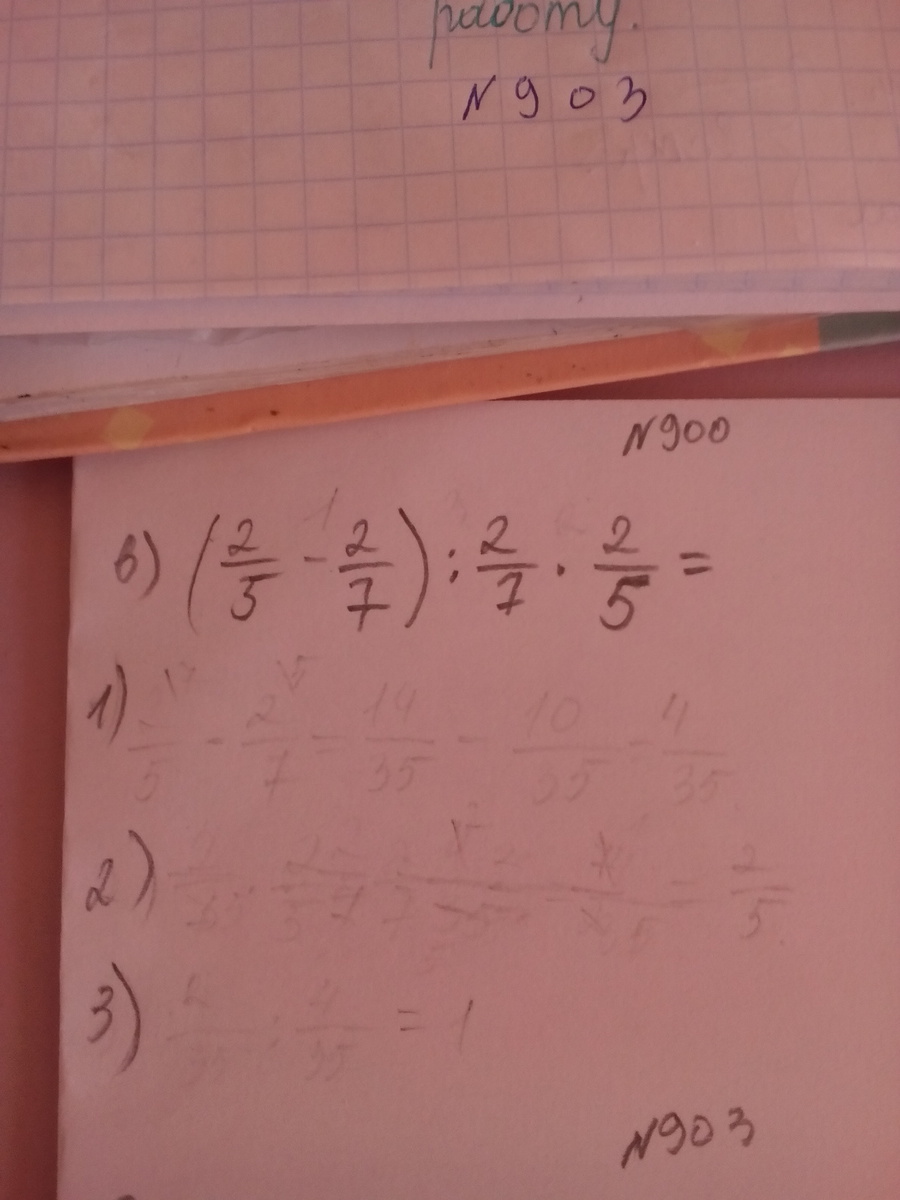 работу.
N 903
N900
в) (2/5 - 2/7) : 2/7 · 2/5 =
1) 2/5 - 2/7 = 14/35 - 10/35 = 4/35
2) = 2/5
3) 4/35 : 4/35 = 1
N903